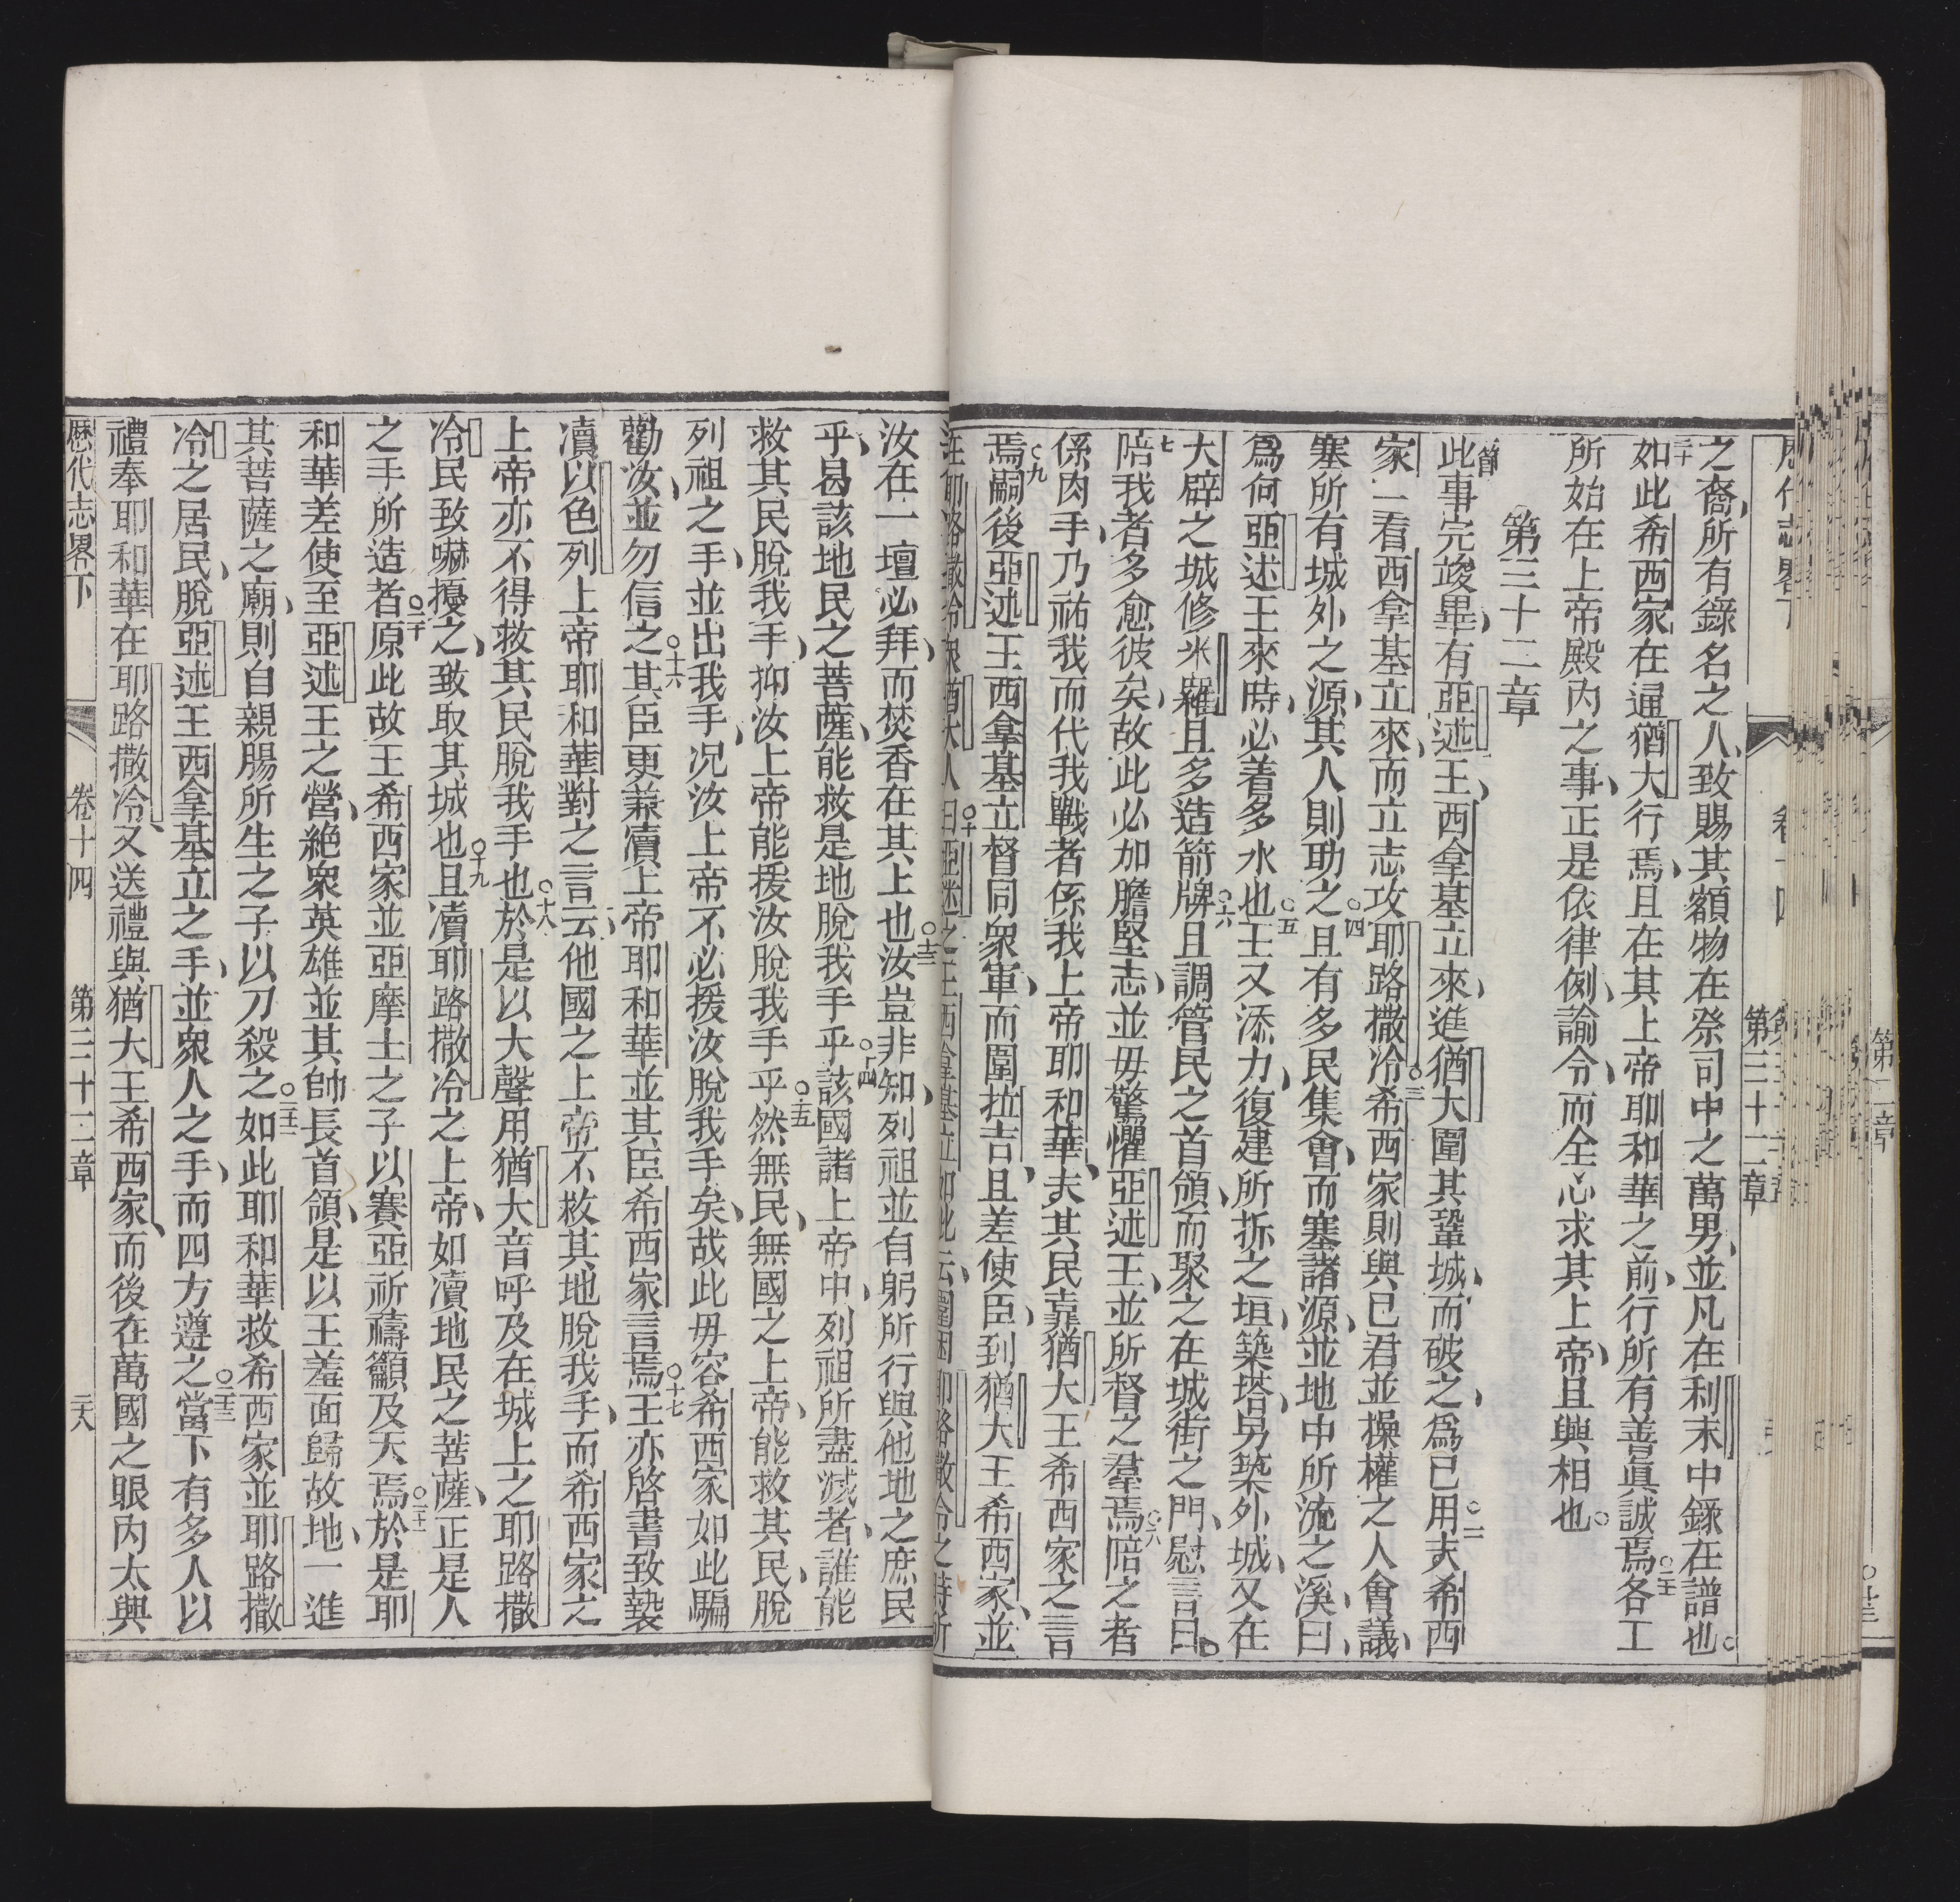 之裔、所有錄名之人、致賜其額物在祭司中之萬男、並凡在利末中錄在譜也○
三十如此希西家在通猶大行焉、且在其上帝耶和華之前、行所有善眞誠焉○三一各工
所始在上帝殿內之事、正是依律例、諭令、而全心求其上帝、且與相也○
第三十二章
此事完竣畢、有亞述王、西拿基立來、進猶大圍其鞏城、而破之、爲己用○二夫希西
家一看西拿基立來、而立志攻耶路撒冷○三希西家則與已君並操權之人會議、
塞所有城外之源、其人則助之○四且有多民集會、而塞諸源、並地中所流之溪、曰、
爲何亞述王來時、必着多水也○五王又添力、復建所拆之垣、築塔、另築外城、又在
大辟之城修米羅、且多造箭牌○六且調管民之首領、而聚之在城街之門、慰言曰、
七陪我者多愈彼矣、故此必加膽堅志、並毋驚懼亞述王、並所督之羣焉○八陪之者
係肉手、乃祐我而代我戰者係我上帝耶和華、夫其民靠猶大王希西家之言
焉○九嗣後亞述王西拿基立督同衆軍、而圍拉吉、且差使臣、到猶大王希西家、並
耶路撒冷衆猶大人○十曰、亞述之王西拿基立如此云、圍困耶路撒冷之時所
汝在一壇必拜、而焚香在其上也○十三汝豈非知、列祖並自躬所行與他地之庶民
乎、曷該地民之菩薩、能救是地脫我手乎○十四該國諸上帝中、列祖所盡滅者、誰能
救其民脫我手、抑汝上帝能援汝脫我手乎○十五然無民、無國之上帝、能救其民、脫
列祖之手、並出我手、况汝上帝不必援汝脫我手矣、故此毋容希西家如此騙
勸汝、並勿信之○十六其臣更兼瀆上帝耶和華並其臣希西家言焉○十七王亦啓書致褻
瀆以色列上帝耶和華對之言云、他國之上帝不救其地脫我手、而希西家之
上帝亦不得救其民脫我手也○十八於是以大聲用猶大音呼及在城上之耶路撒
冷民致嚇擾之、致取其城也○十九且瀆耶路撒冷之上帝、如瀆地民之菩薩、正是人
之手所造者○二十原此故王希西家並亞摩士之子以賽亞祈禱籲及天焉○二十一於是耶
和華差使至亞述王之營、絶衆英雄並其帥長首領、是以王羞面歸故地、一進
其菩薩之廟、則自親腸所生之子以刀殺之○二十二如此耶和華救希西家並耶路撒
冷之居民、脫亞述王西拿基立之手、並衆人之手、而四方遵之○二十三當下有多人以
禮奉耶和華在耶路撒冷、又送禮與猶大王希西家、而後在萬國之眼內太興
歷代志畧下 卷十四 第三十二章 三八